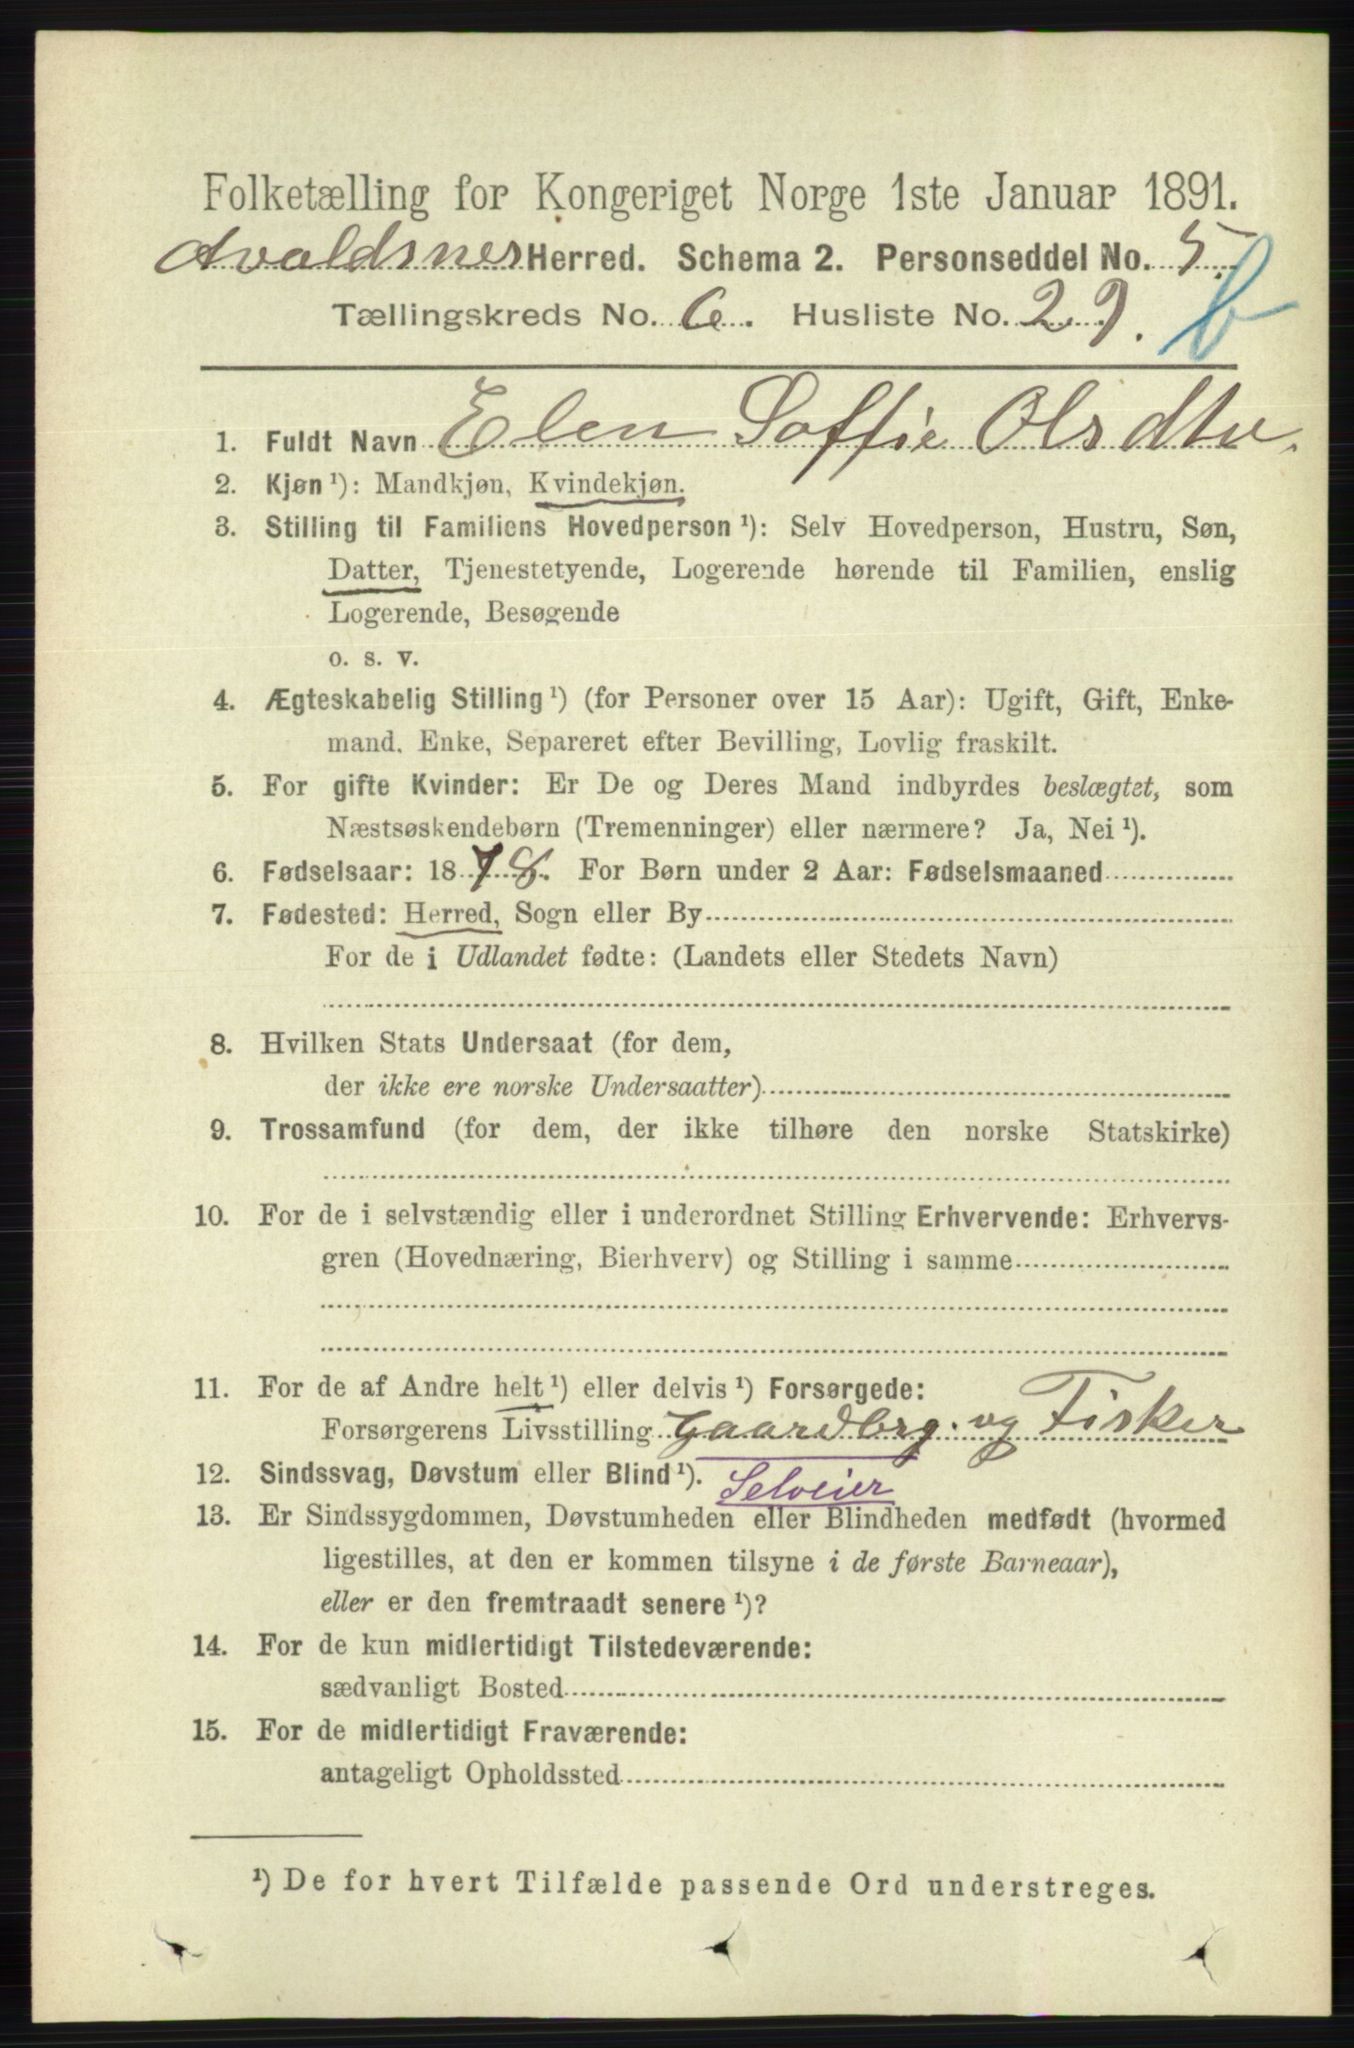 Folketælling for Kongeriget Norge 1ste Januar 1891.
Avaldsnes Herred. Schema 2. Personseddel No. 5.
Tællingskreds No. 6. Husliste No. 29. b
1. Fuldt Navn Elen Soffie Olsdtr.
2. Kjøn ¹): Mandkjøn, Kvindekjøn.
3. Stilling til Familiens Hovedperson ¹): Selv Hovedperson, Hustru, Søn,
Datter, Tjenestetyende, Logerende hørende til Familien, enslig
Logerende, Besøgende
o. s. v.
4. Ægteskabelig Stilling ¹) (for Personer over 15 Aar): Ugift, Gift, Enke-
mand, Enke, Separeret efter Bevilling, Lovlig fraskilt.
5. For gifte Kvinder: Er De og Deres Mand indbyrdes beslægtet, som
Næstsøskendebørn (Tremenninger) eller nærmere? Ja, Nei ¹).
6. Fødselsaar: 1878. For Børn under 2 Aar: Fødselsmaaned
7. Fødested: Herred, Sogn eller By
For de i Udlandet fødte: (Landets eller Stedets Navn)
8. Hvilken Stats Undersaat (for dem,
der ikke ere norske Undersaatter)
9. Trossamfund (for dem, der ikke tilhøre den norske Statskirke)
10. For de i selvstændig eller i underordnet Stilling Erhvervende: Erhvervs-
gren (Hovednæring, Bierhverv) og Stilling i samme
11. For de af Andre helt ¹) eller delvis ¹) Forsørgede:
Forsørgerens Livsstilling Gaardbrg. og Fisker
12. Sindssvag, Døvstum eller Blind ¹). Selveier
13. Er Sindssygdommen, Døvstumheden eller Blindheden medfødt (hvormed
ligestilles, at den er kommen tilsyne i de første Barneaar),
eller er den fremtraadt senere ¹)?
14. For de kun midlertidigt Tilstedeværende:
sædvanligt Bosted
15. For de midlertidigt Fraværende:
antageligt Opholdssted
¹) De for hvert Tilfælde passende Ord understreges.